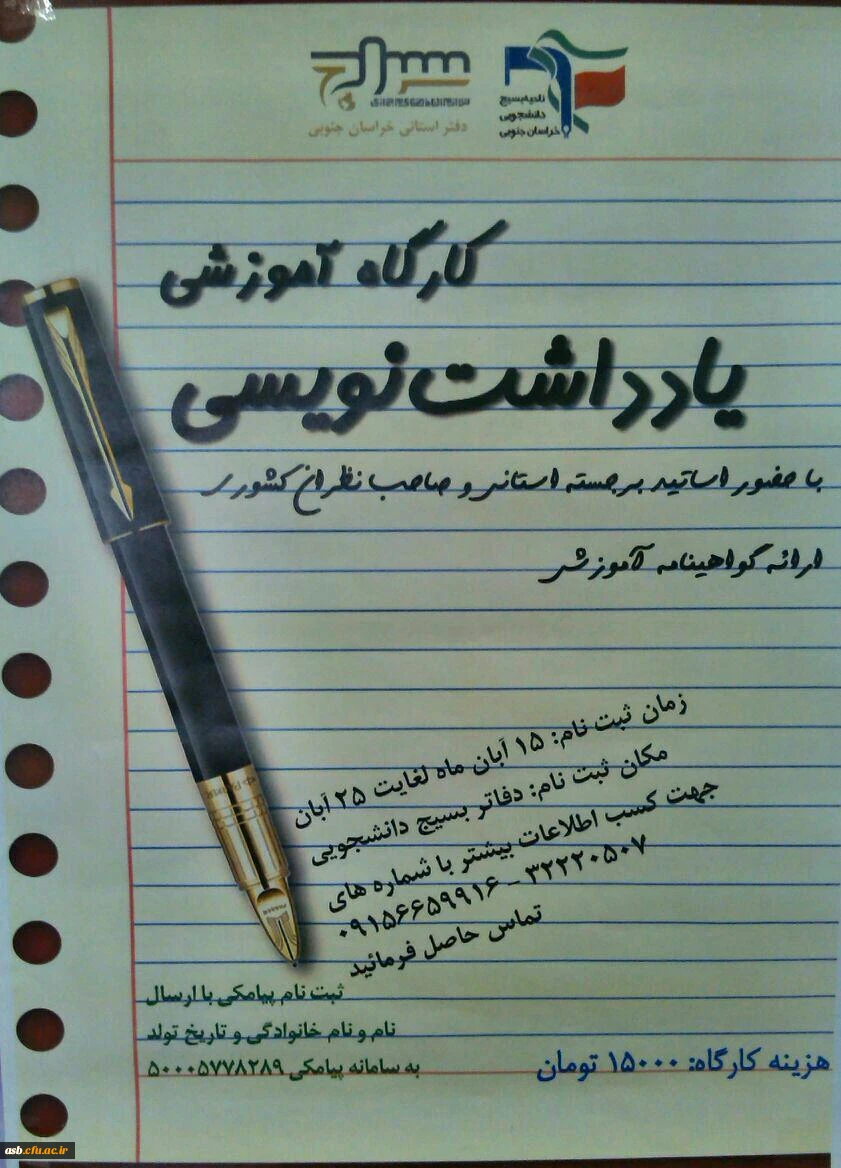 سراج
دفتر استانی خراسان جنوبی
ناحیه بسیج
دانشجویی
خراسان جنوبی
کارگاه آموزشی
یادداشت نویسی
با حضور اساتید برجسته استانی و صاحب نظران کشوری
ارائه گواهینامه آموزشی
زمان ثبت نام: ۱۵ آبان ماه لغایت ۲۵ آبان
مکان ثبت نام: دفاتر بسیج دانشجویی
جهت کسب اطلاعات بیشتر با شماره های
۳۲۲۲۰۵۰۷ - ۰۹۱۵۶۶۵۹۹۱۶
تماس حاصل فرمائید
ثبت نام پیامکی با ارسال
نام و نام خانوادگی و تاریخ تولد
به سامانه پیامکی ۵۰۰۰۵۷۷۸۲۸۹
هزینه کارگاه: ۱۵۰۰۰ تومان
asb.cfu.ac.ir